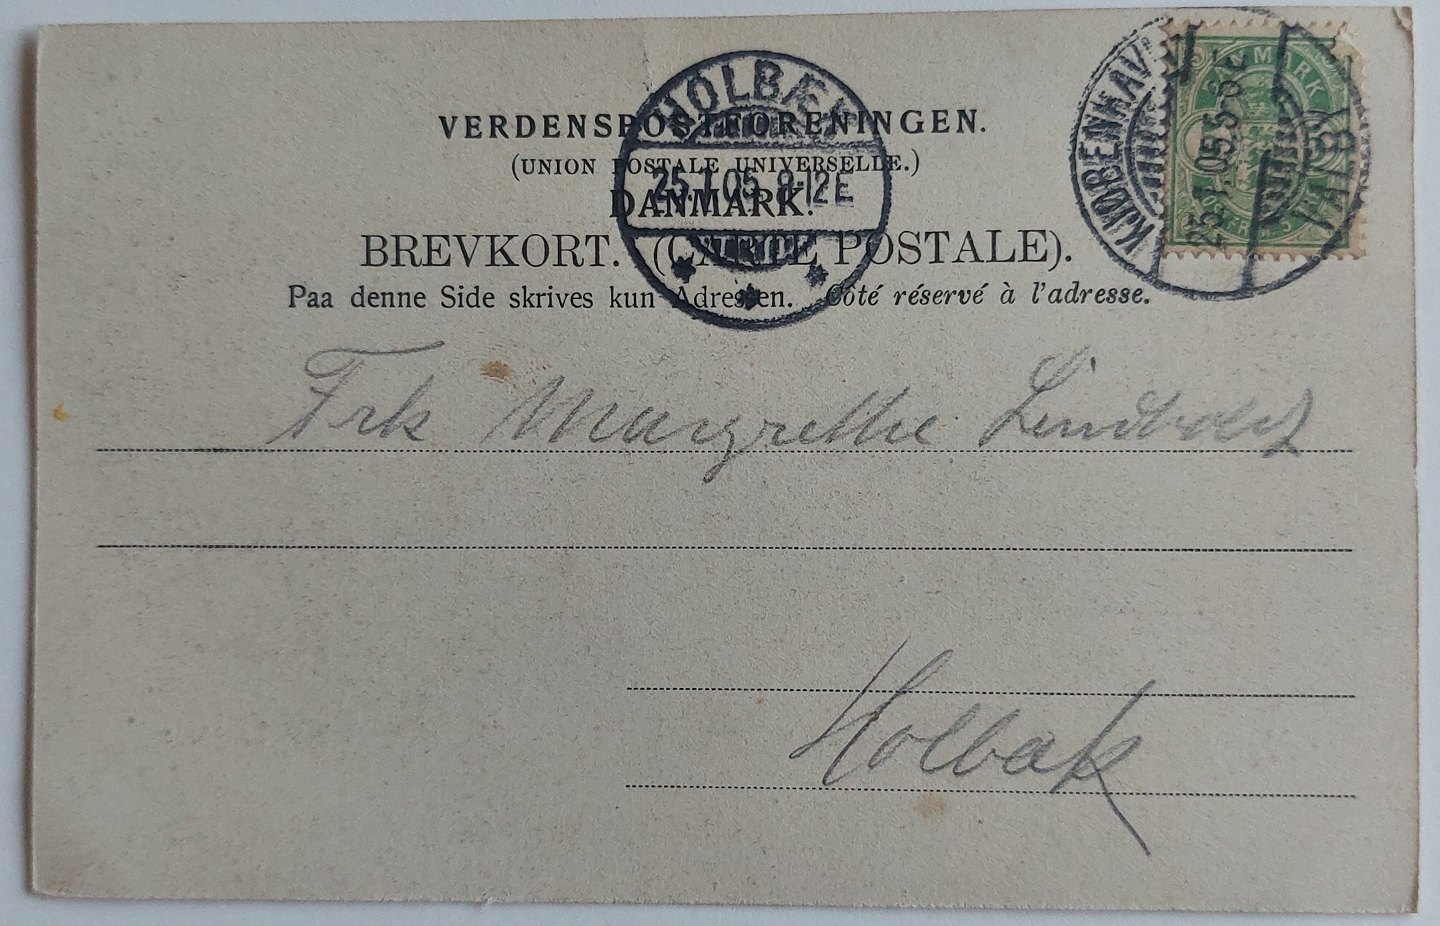 VERDENSPOSTFORENINGEN.
(UNION POSTALE UNIVERSELLE.)
DANMARK.
BREVKORT. (CARTE POSTALE).
Paa denne Side skrives kun Adressen. Côté réservé à l'adresse.
HOLBÆK
25.1.05 8-12E
KJØBENHAVN
25.1.05.5-8E
DANMARK
Frk Margrethe Lindholdt
Holbak